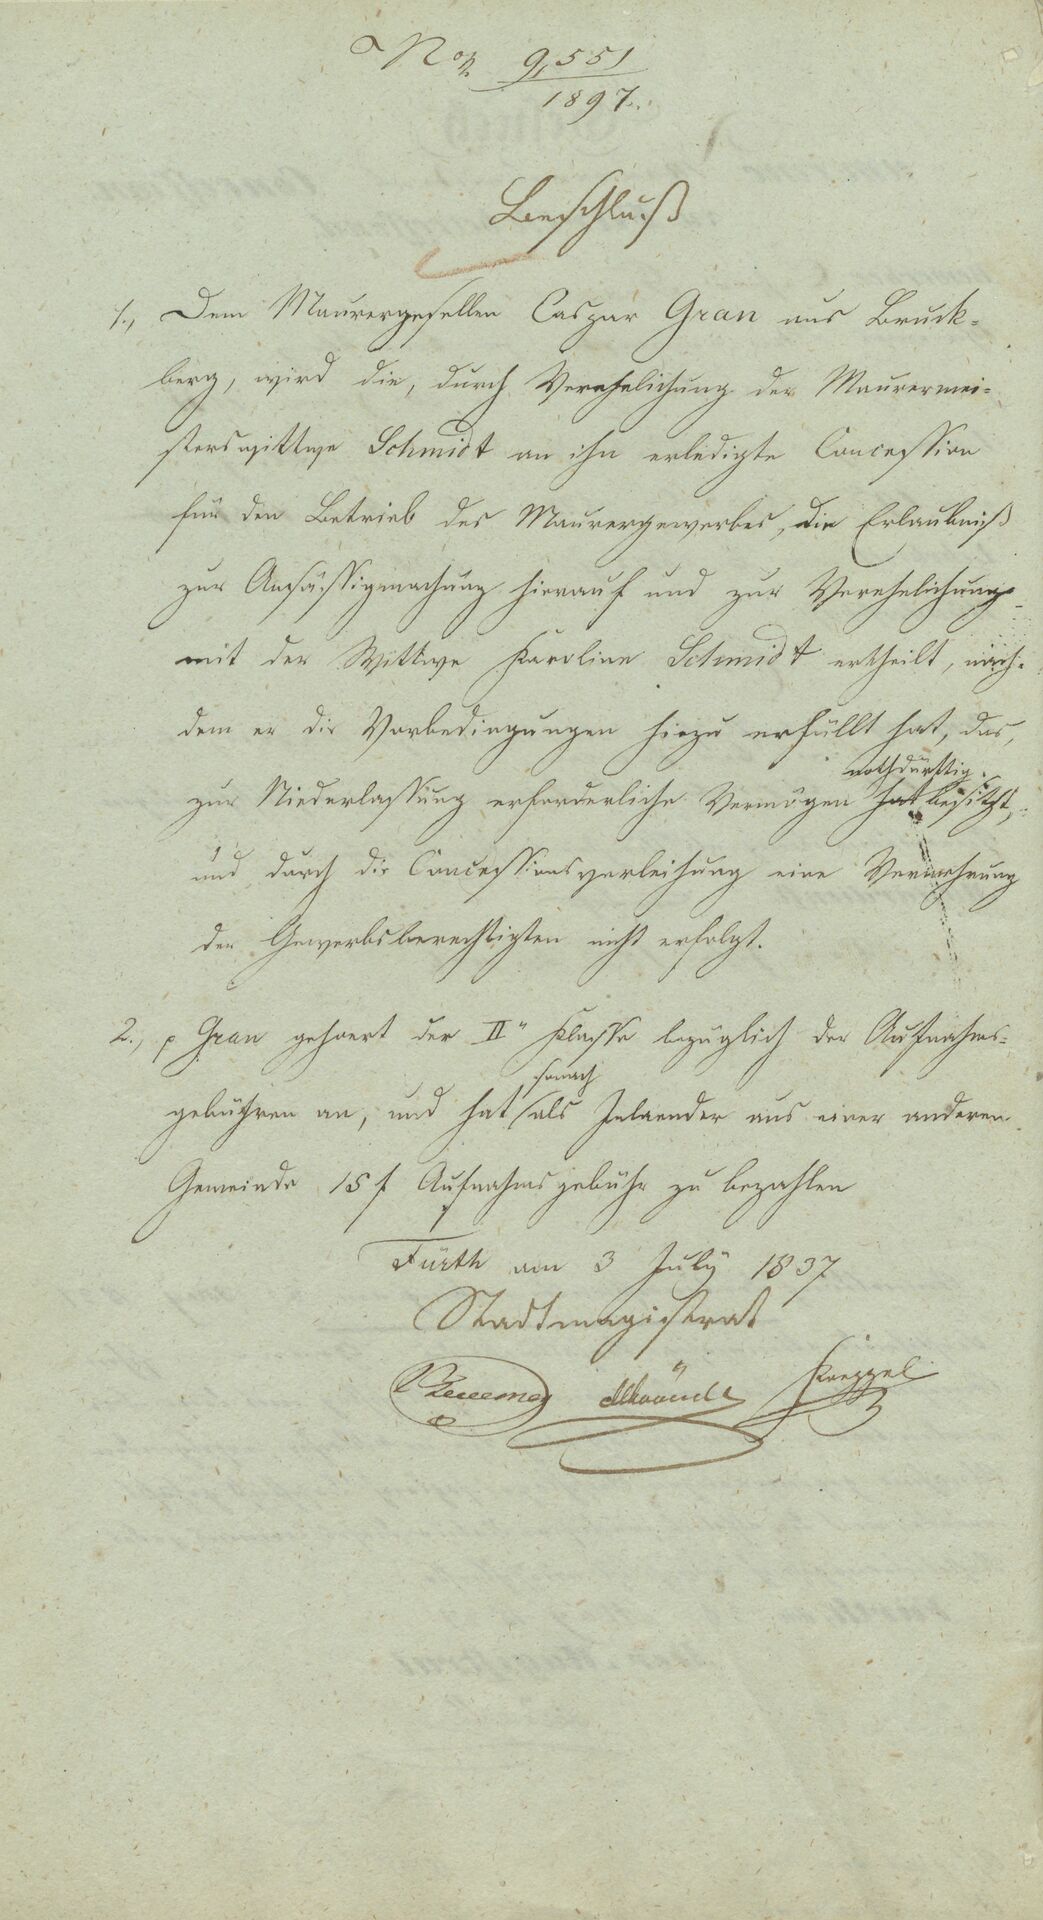 Nor. 9,551
1897.
Beschluß
1., Dem Maurergesellen Caspar Gran aus Bruck-
berg, wird die, durch Verehelichung der Maurermei-
sterswittwe Schmidt an ihn erledigte Concession
für den Betrieb des Maurergewerbes, die Erlaubniß
zur Ansässigmachung hierauf und zur Verehelichung
mit der Wittwe Karoline Schmidt ertheilt, nach-
dem er die Vorbedingungen hiezu erfüllt hat, das,
nothdürftig
zur Niederlassung erforderliche Vermögen hat besitzt,
und durch die Concessionsverleihung eine Vermehrung
der Gewerbsberechtigten nicht erfolgt.
2., p Gran gehoert der II" Klasse bezüglich der Aufnahms-
sonach
gebühren an, und hat als Inlaender aus einer anderen
Gemeinde 15 f Aufnahmsgebühr zu bezahlen
Fürth am 3 July 1837
Stadtmagistrat
Koeppel